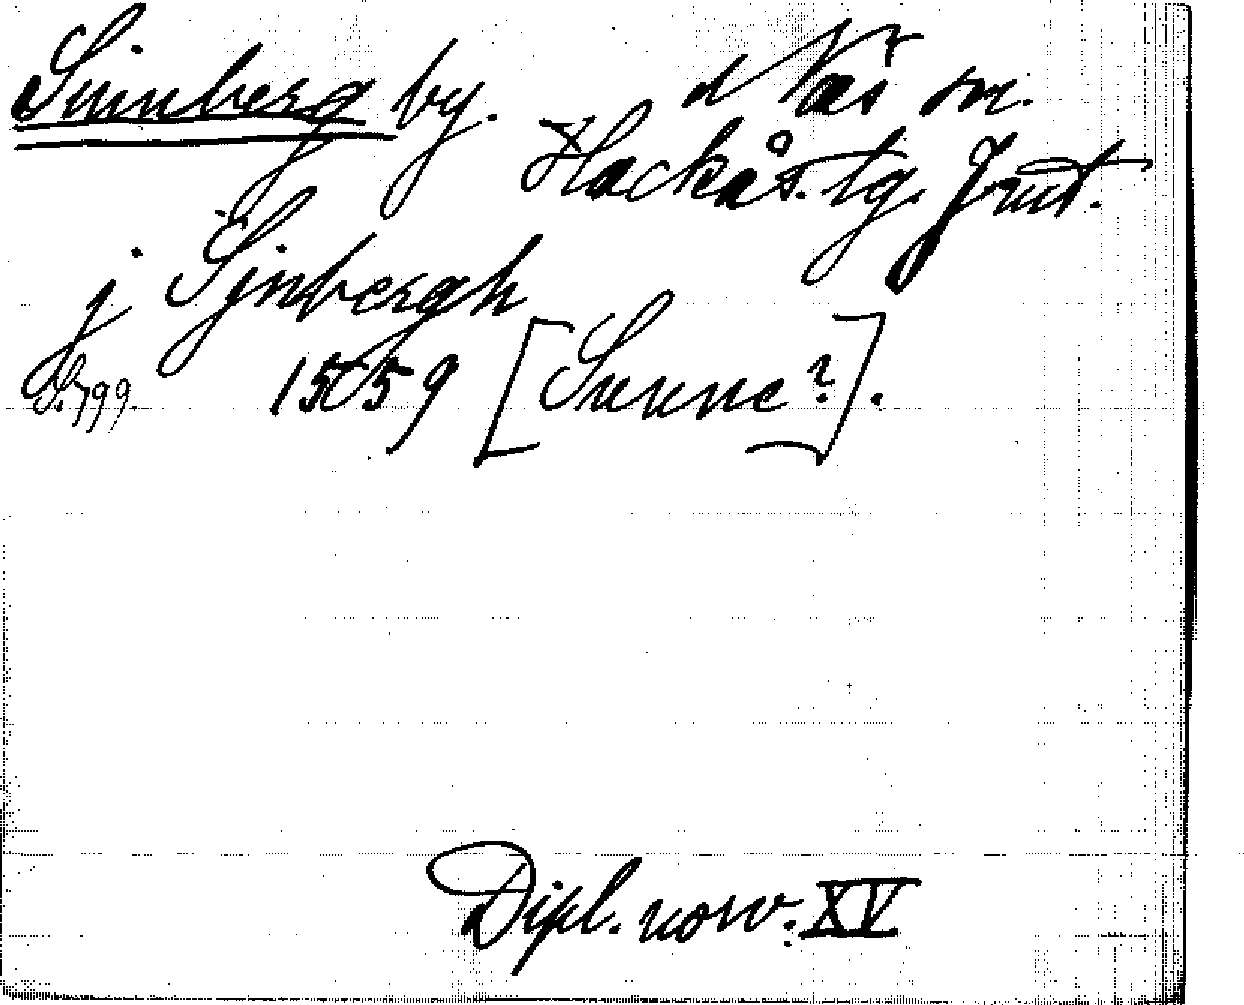 Sinnberg by. Näs sn.
Hackås tg. Jmt.
j Sjnbergh
S. 799. 1559 [Sunne?].
Dipl. norv. XV